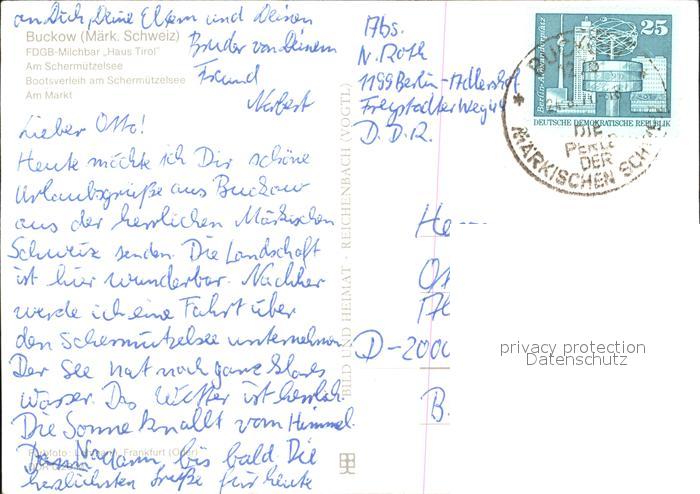 an Dich, Deine Eltern und Deinen
Bruder von Deinem
Freund
Norbert
Buckow (Märk. Schweiz)
FDGB-Milchbar „Haus Tirol"
Am Schermützelsee
Bootsverleih am Schermützelsee
Am Markt
Lieber Otto!
Heute möchte ich Dir schöne
Urlaubsgrüße aus Buckow
aus der herrlichen Märkischen
Schweiz senden. Die Landschaft
ist hier wunderbar. Nachher
werde ich eine Fahrt über
den Schermützelsee unternehmen.
Der See hat noch ganz klares
Wasser. Das Wetter ist herrlich.
Die Sonne knallt vom Himmel.
Na dann, bis bald Die
herzlichsten Grüße für heute
Frankfurt (Oder)
BILD UND HEIMAT · REICHENBACH (VOGTL)
Abs.
N. Roth
1199 Berlin-Adlershof
Freystadter Weg
D.D.R.
25
Berlin-Alexanderplatz
DEUTSCHE DEMOKRATISCHE REPUBLIK
DIE
PERLE
DER
MÄRKISCHEN
He
D-2000
B.
privacy protection
Datenschutz